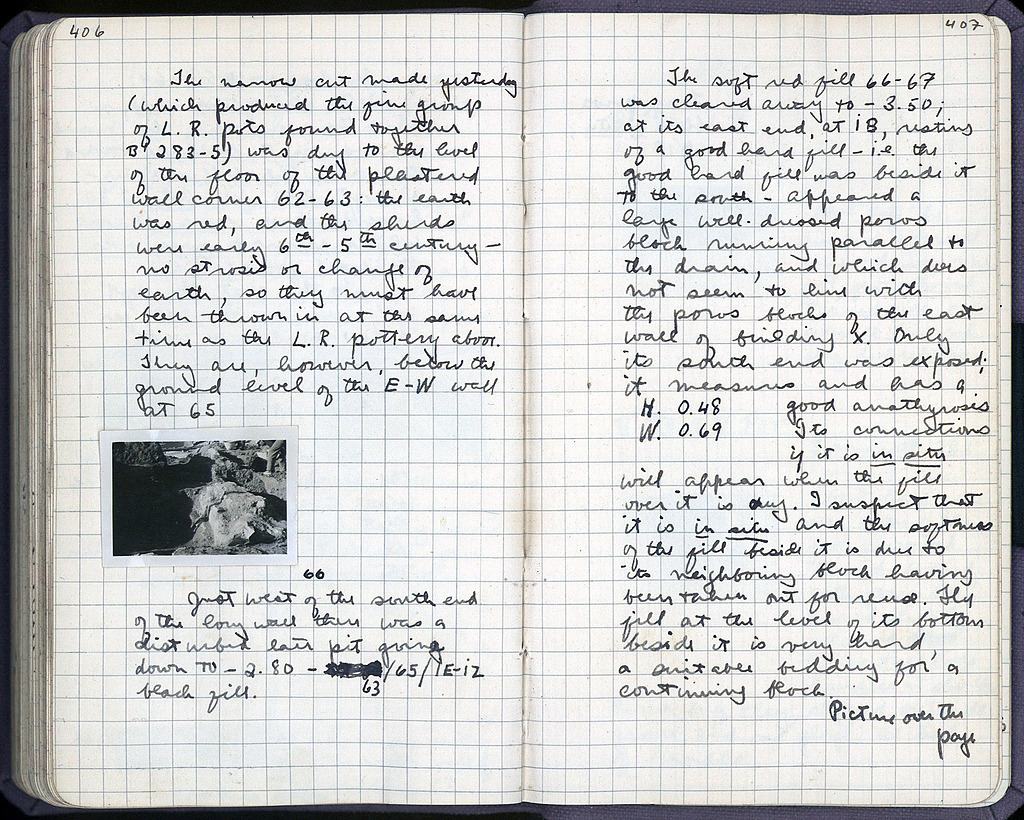 406
The narrow cut made yesterday
(which produced the fine group
of L. R. pots found together
B' 283-5) was dug to the level
of the floor of the plastered
wall corner 62-63: the earth
was red, and the sherds
were early 6th - 5th century —
no strosis or change of
earth, so they must have
been thrown in at the same
time as the L. R. pottery above.
They are, however, below the
ground level of the E-W wall
at 65
66
Just west of the south end
of the long wall there was a
disturbed late pit going
down to - 2.80 - /65/
63
black fill.
407
The soft red fill 66-67
was cleared away to - 3.50;
at its east end, at
of a good hard fill - i.e. the
good hard fill was beside it
to the south - appeared a
large well-dressed poros
block running parallel to
the drain, and which does
not seem to line with
the poros blocks of the east
wall of building X. Only
its south end was exposed;
it measures and has a
H. 0.48 good anathyrosis
W. 0.69 Its connections
if it is in situ
will appear when the fill
over it is dug. I suspect that
it is in situ and the softness
of the fill beside it is due to
its neighboring block having
been taken out for reuse. The
fill at the level of its bottom
beside it is very hard,
a suitable bedding for a
continuing block.
Picture over the
page